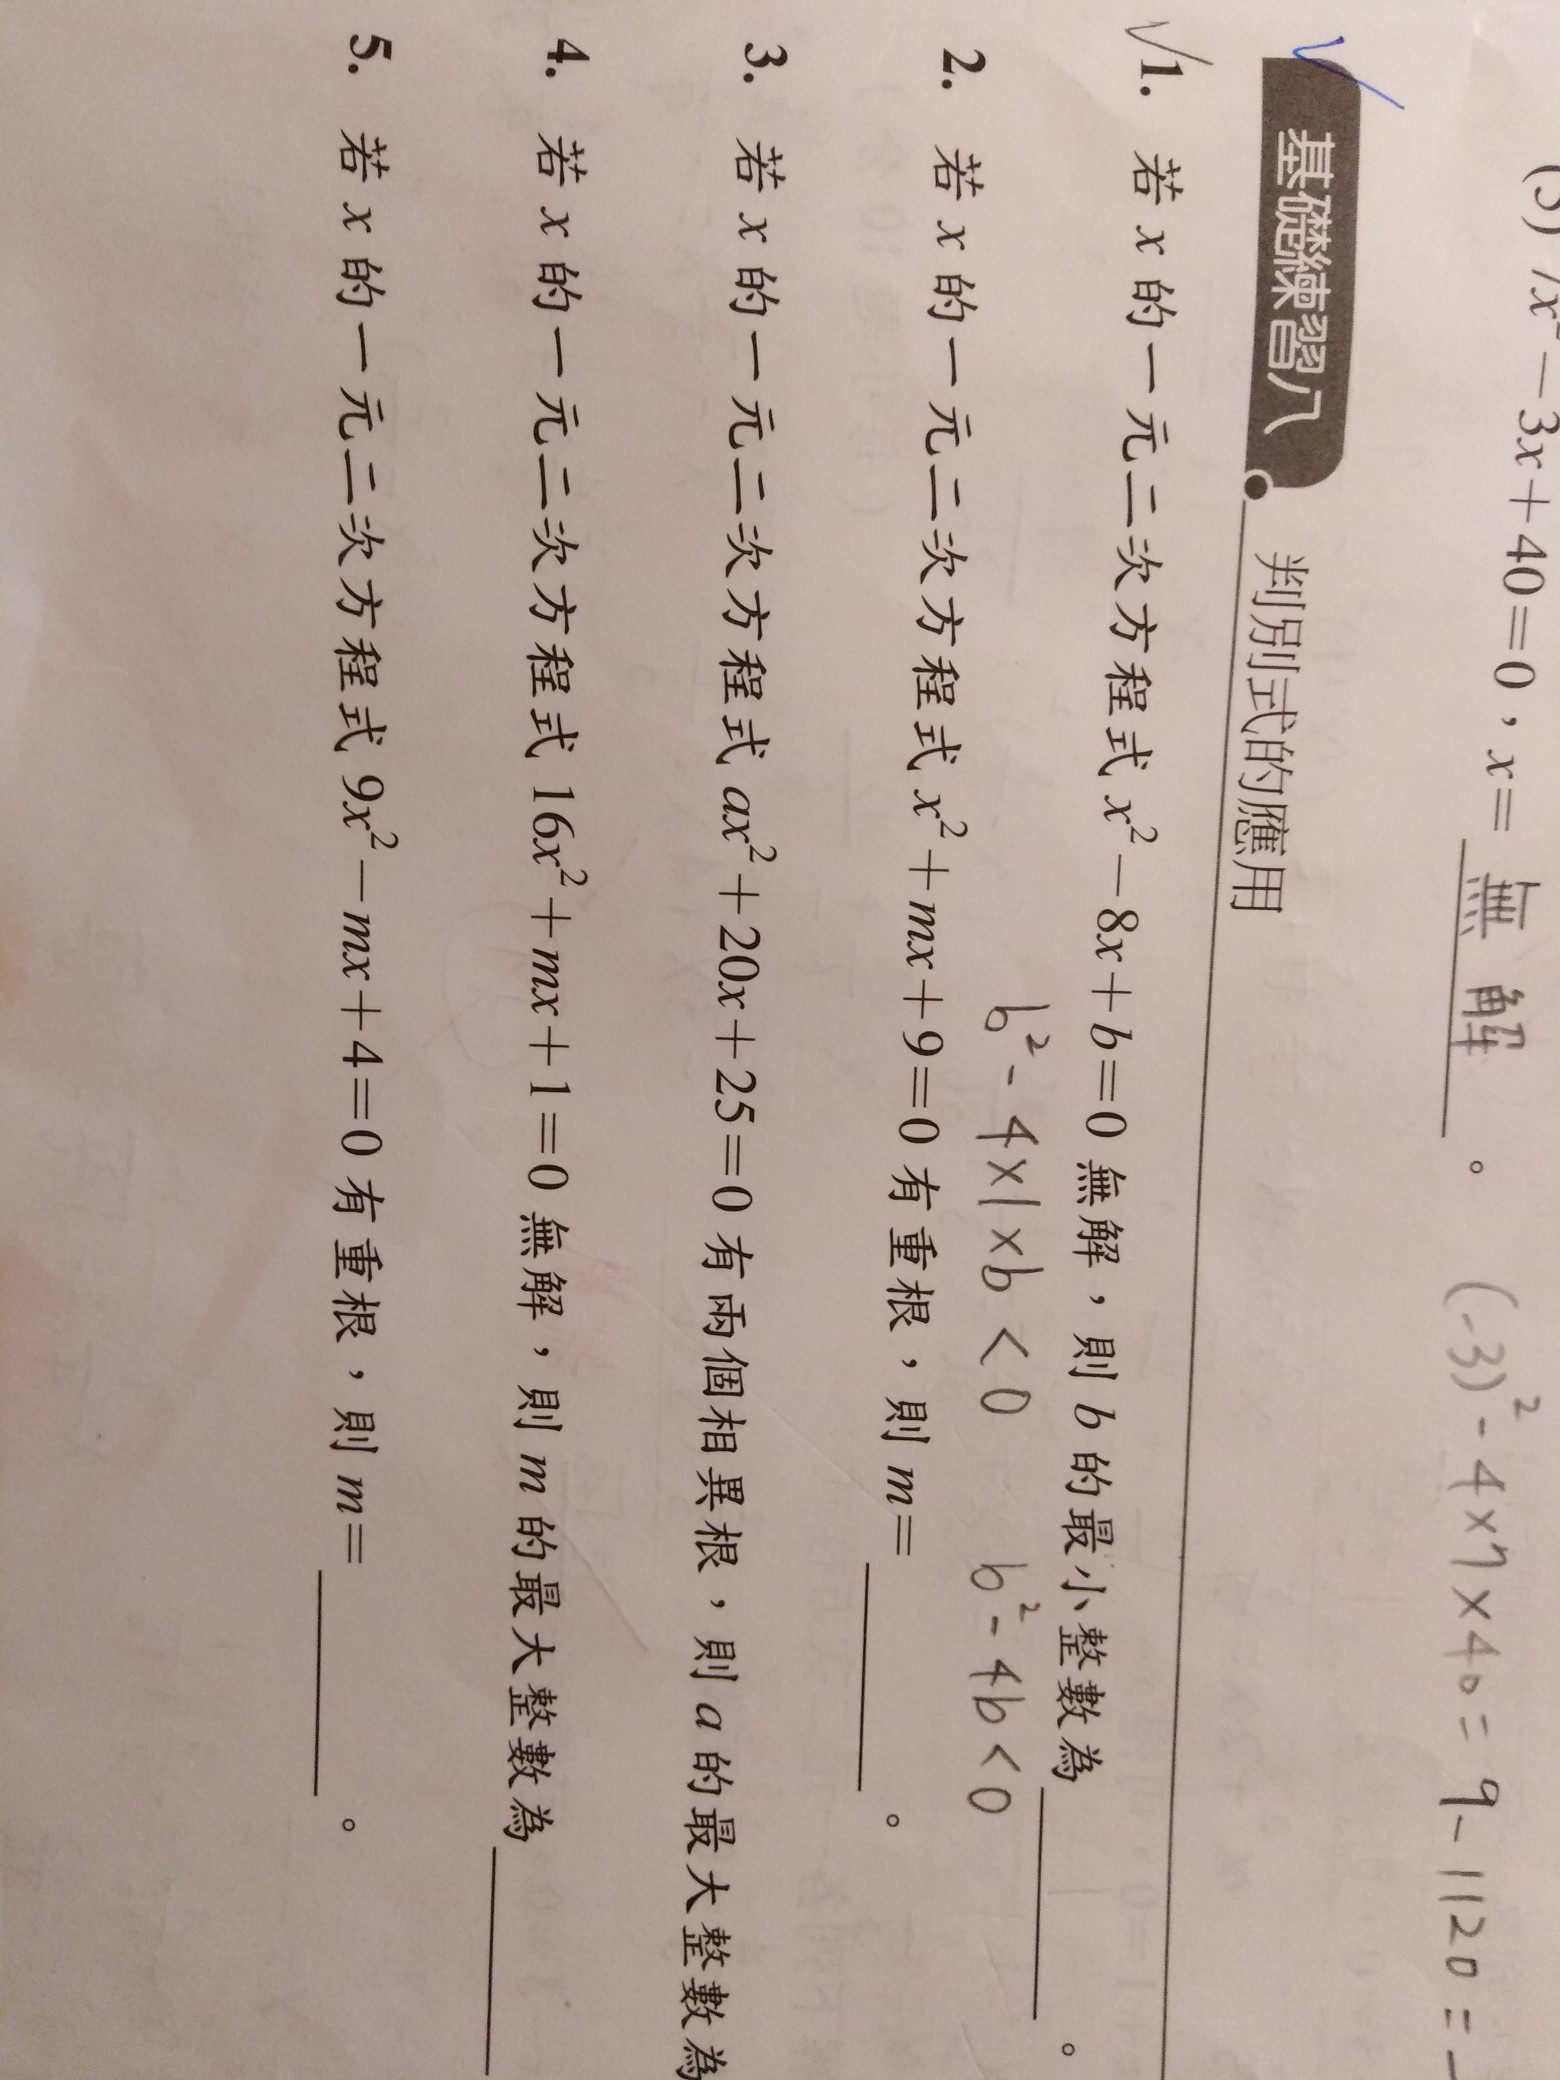 (5) 7x²−3x+40=0，x= 無解 。 (-3)²-4×7×40=9-1120=-
基礎練習八 判別式的應用
1. 若 x 的一元二次方程式 x²−8x+b=0 無解，則 b 的最小整數為 。
b²-4×1×b<0 b²-4b<0
2. 若 x 的一元二次方程式 x²+mx+9=0 有重根，則 m= 。
3. 若 x 的一元二次方程式 ax²+20x+25=0 有兩個相異根，則 a 的最大整數為
4. 若 x 的一元二次方程式 16x²+mx+1=0 無解，則 m 的最大整數為
5. 若 x 的一元二次方程式 9x²−mx+4=0 有重根，則 m= 。